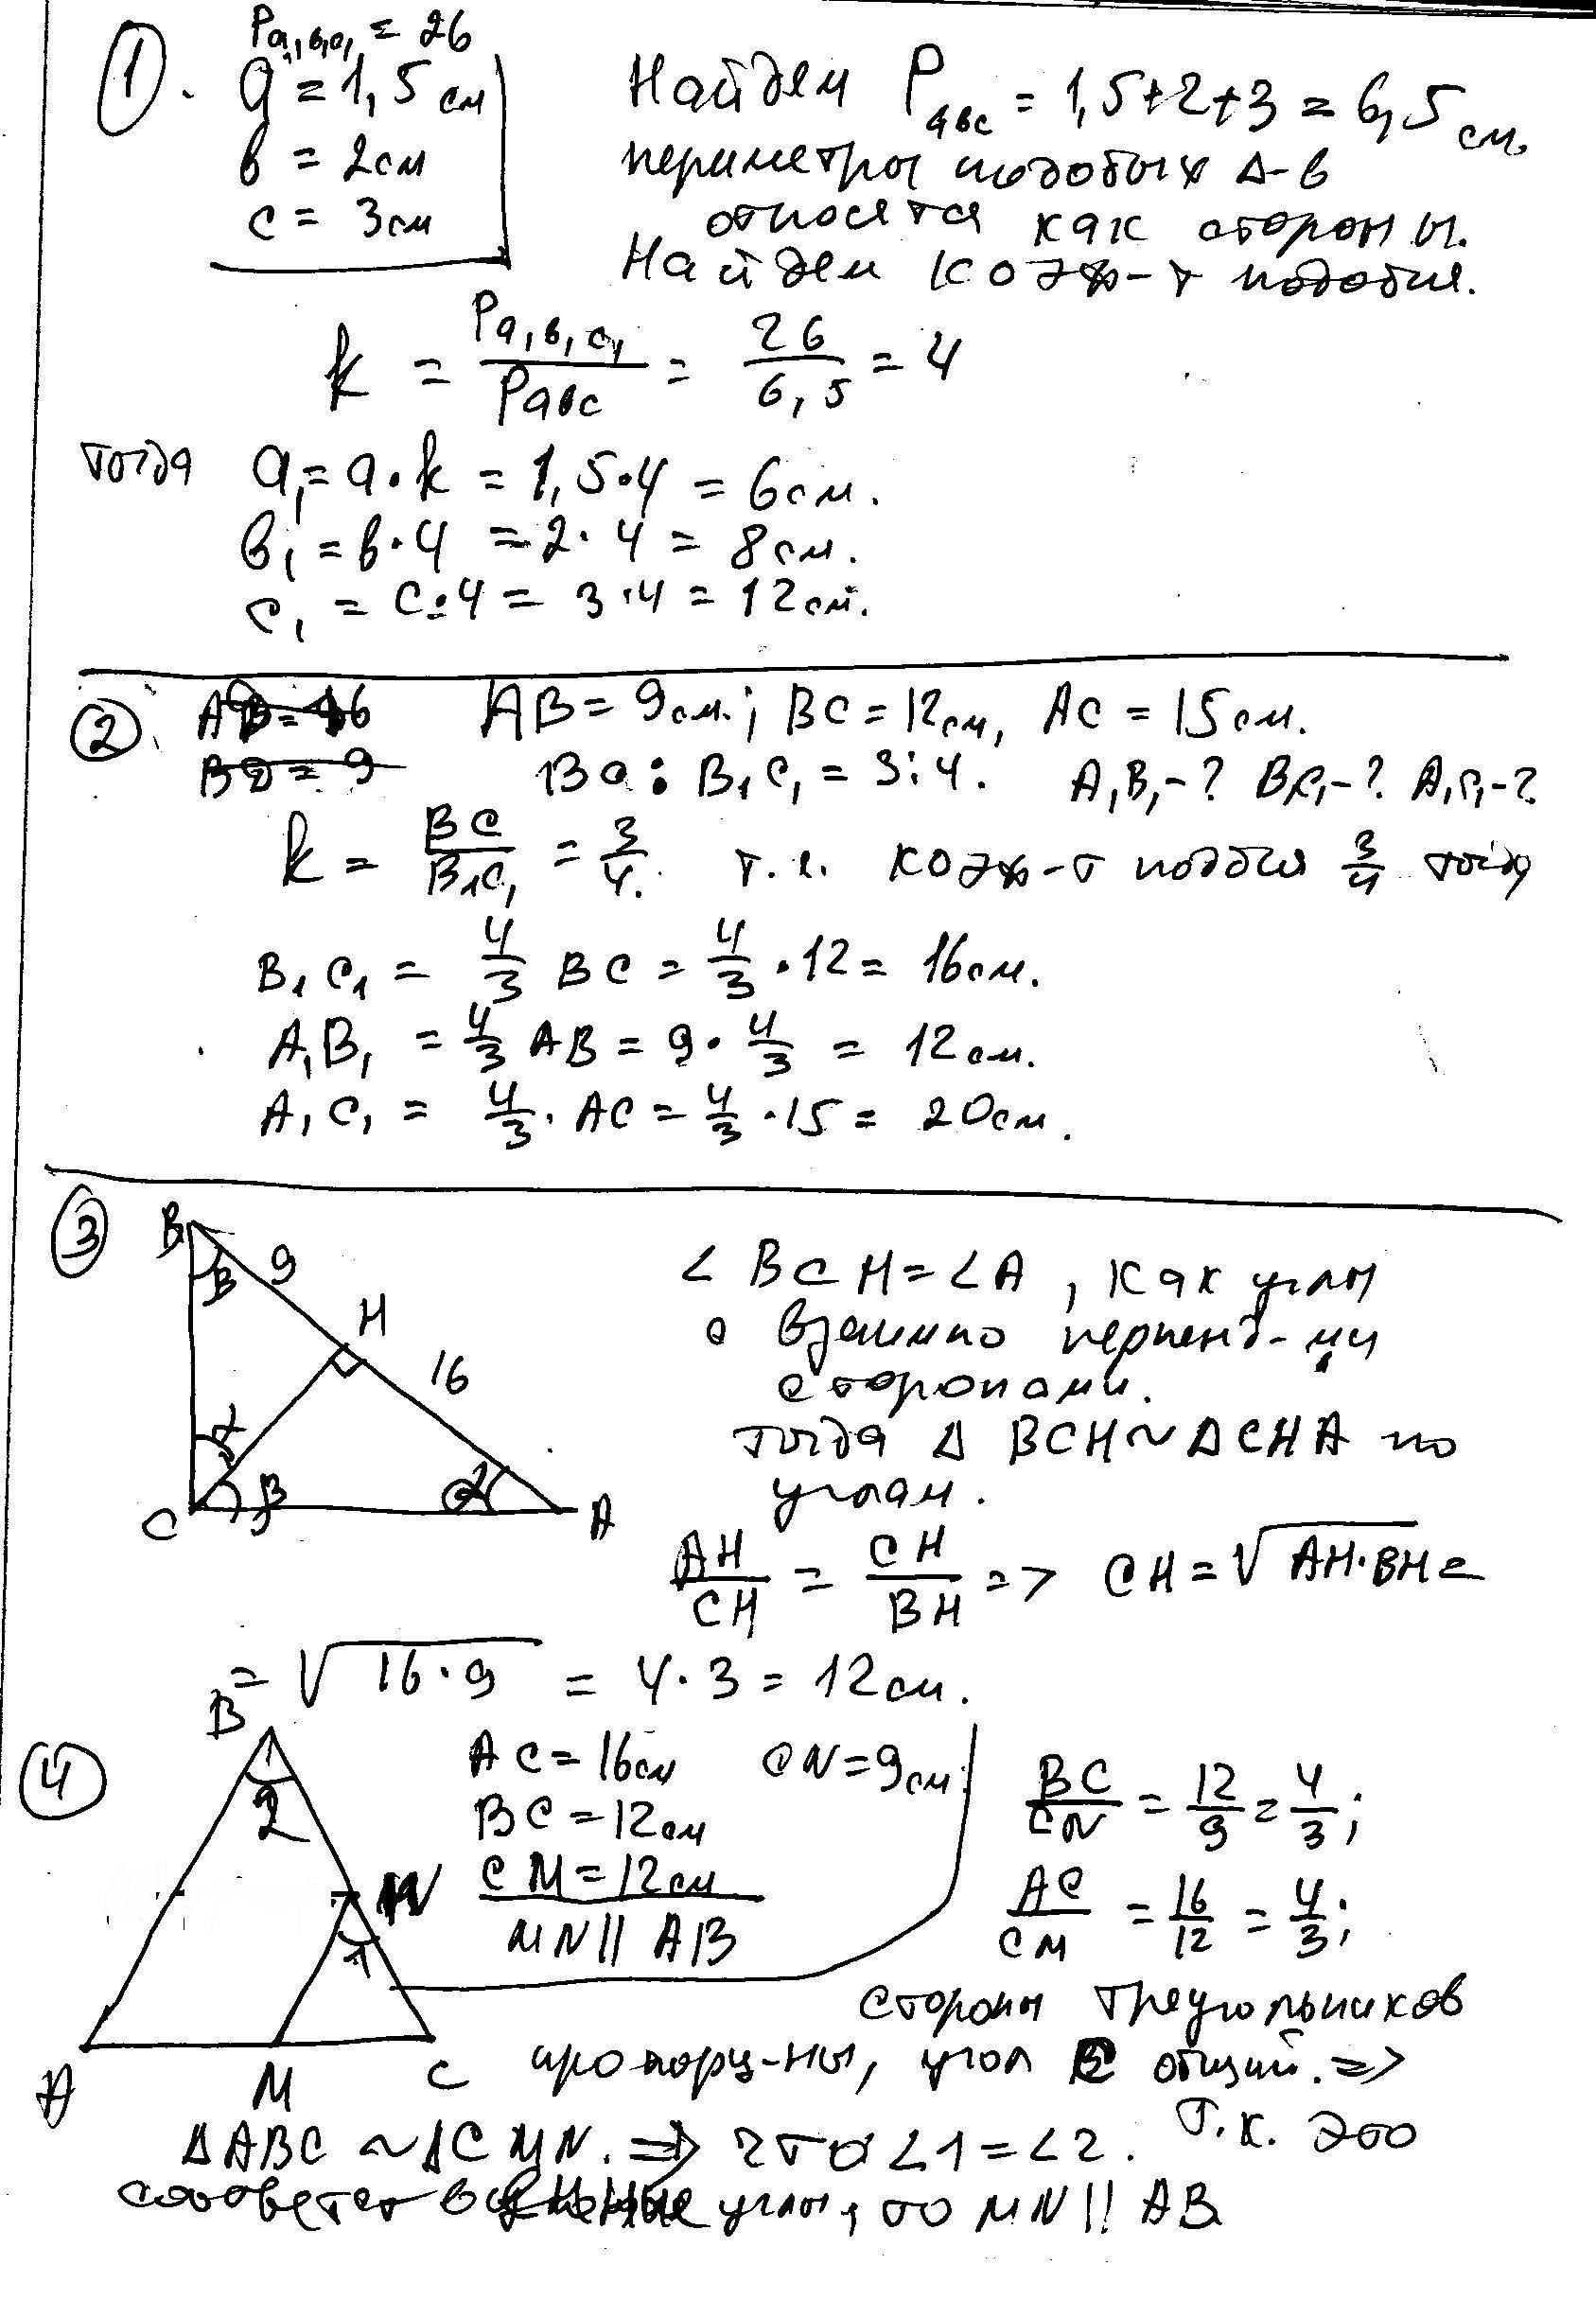 1.
Pа₁в₁с₁ = 26
a = 1,5 см
в = 2см
с = 3см
Найдем Pавс = 1,5+2+3 = 6,5 см.
периметры подобных Δ-в
относятся как стороны.
Найдем коэф-т подобия.
k = Pа₁в₁с₁ / Pавс = 26 / 6,5 = 4
тогда a₁ = a · k = 1,5 · 4 = 6см.
в₁ = в · 4 = 2 · 4 = 8см.
с₁ = с · 4 = 3 · 4 = 12см.
2. AB = 9см.; BC = 12см, AC = 15см.
BC : B₁C₁ = 3:4. A₁B₁-? B₁C₁-? A₁C₁-?
k = BC / B₁C₁ = 3/4. т.е. коэф-т подобия 3/4 тогда
B₁C₁ = 4/3 BC = 4/3 · 12 = 16см.
A₁B₁ = 4/3 AB = 9 · 4/3 = 12см.
A₁C₁ = 4/3 · AC = 4/3 · 15 = 20см.
3
B
β
9
H
16
α
C
β
α
A
∠BCH = ∠A, как углы
с взаимно перпенд-ми
сторонами.
тогда Δ BCH ~ Δ CHA по
углам.
AH / CH = CH / BH => CH = √AH·BH =
= √16·9 = 4·3 = 12см.
4
B
2
N
1
A
M
C
AC = 16см CN = 9см.
BC = 12см
CM = 12см
MN || AB
BC / CN = 12/9 = 4/3;
AC / CM = 16/12 = 4/3;
стороны треугольников
пропорц-ны, угол C общий. =>
ΔABC ~ ΔCMN. => что ∠1 = ∠2. Т.к. это
соответственные углы, то MN || AB